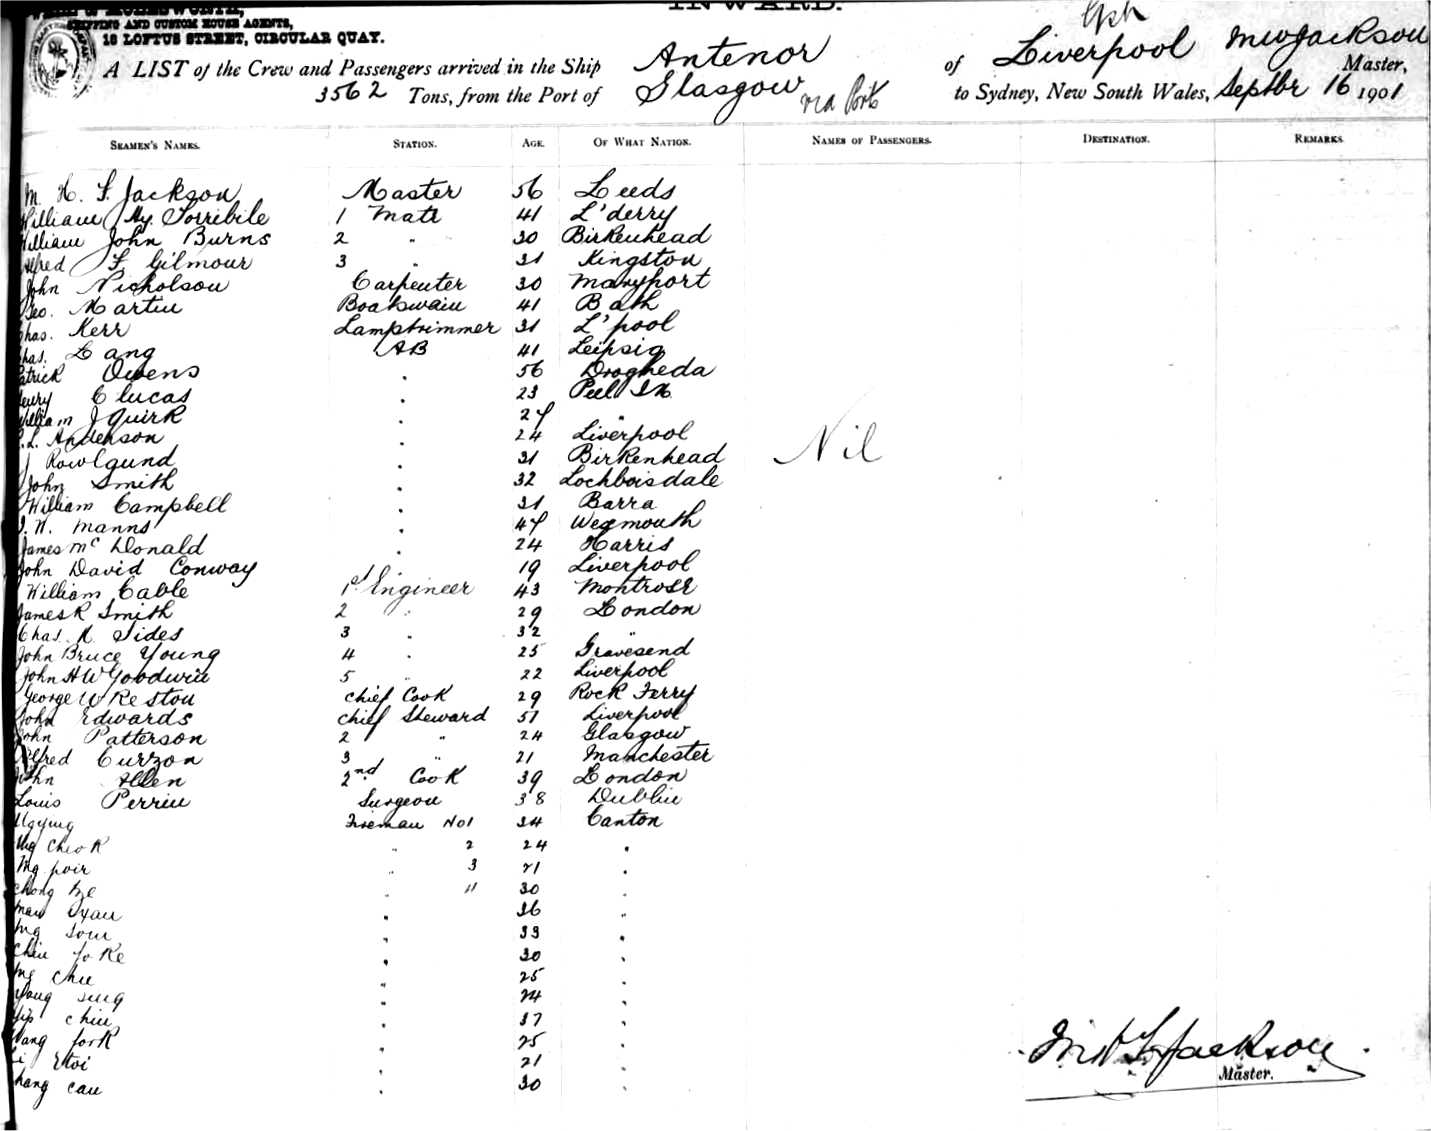 INWARD.
SHIPPING AND CUSTOM HOUSE AGENTS,
16 LOFTUS STREET, CIRCULAR QUAY.
A LIST of the Crew and Passengers arrived in the Ship Antenor of Liverpool Jackson Master,
3562 Tons, from the Port of Glasgow via Ports to Sydney, New South Wales, Septbr 16 1901
SEAMEN'S NAMES. STATION. AGE. OF WHAT NATION. NAMES OF PASSENGERS. DESTINATION. REMARKS.
M. H. F. Jackson Master 56 Leeds
William Hy. Torribile 1 Mate 41 L'derry
William John Burns 2 " 30 Birkenhead
Alfred F. Gilmour 3 " 31 Kingston
John Nicholson Carpenter 30 Maryport
Geo. Martin Boatswain 41 Bath
Chas. Kerr Lamptrimmer 31 L'pool
Chas. Lang AB 41 Leipsig
Patrick Owens " 56 Drogheda
Henry Clucas " 23 Peel I M
William J Quirk " 24 "
Anderson " 24 Liverpool
J " 31 Birkenhead
John Smith " 32 Lochboisdale
William Campbell " 31 Barra
Manns " 44 Weymouth
James McDonald " 24 Harris
John David Conway 19 Liverpool
William Cable 1st Engineer 43 Montrose
James R Smith 2 " 29 London
Chas. R. Sides 3 " 32 "
John Bruce Young 4 " 25 Gravesend
John H W Goodwin 5 " 22 Liverpool
George W Keston Chief Cook 29 Rock Ferry
John Edwards Chief Steward 51 Liverpool
John Patterson 2 " 24 Glasgow
Alfred Curzon 3 " 21 Manchester
John Allen 2nd Cook 39 London
Louis Perrin Surgeon 38 Dublin
Fireman No1 34 Canton
Cheok " 2 24 "
Ng poir " 3 21 "
Chong " " 30 "
" 36 "
Ng " 33 "
" 30 "
Chu " 25 "
sing " 24 "
Yip chin " 37 "
fork " 25 "
" 21 "
" 30 "
Nil
Jackson
Master.